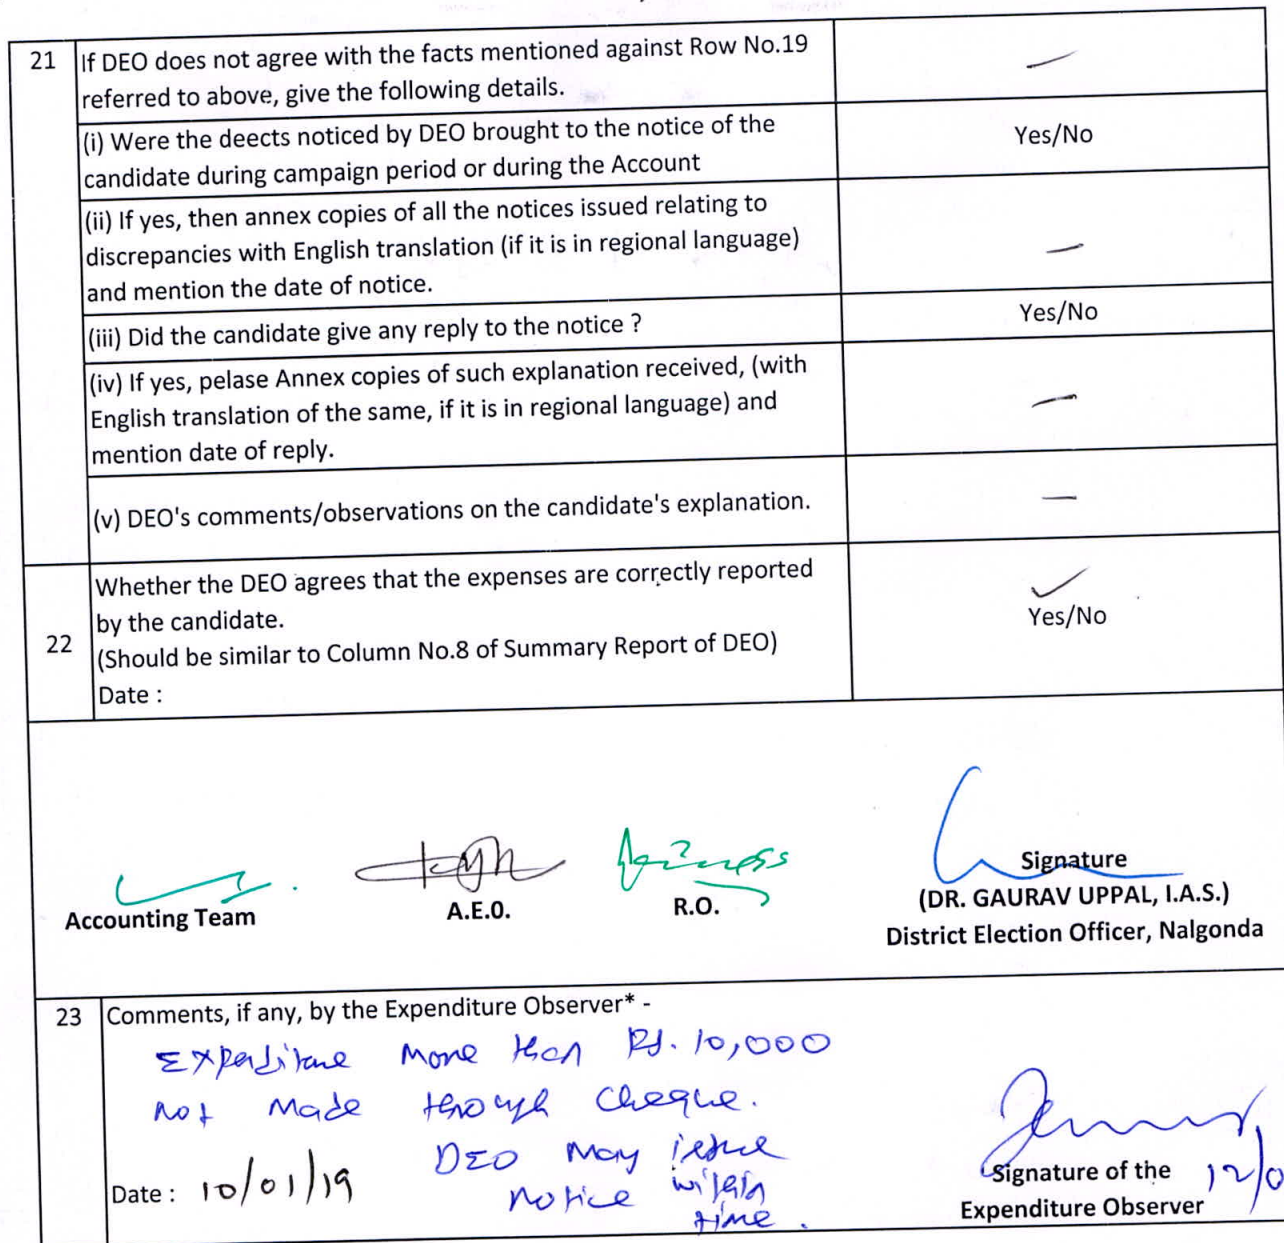 21 If DEO does not agree with the facts mentioned against Row No.19
referred to above, give the following details. —
(i) Were the deects noticed by DEO brought to the notice of the
candidate during campaign period or during the Account
Yes/No
(ii) If yes, then annex copies of all the notices issued relating to
discrepancies with English translation (if it is in regional language)
and mention the date of notice.
—
(iii) Did the candidate give any reply to the notice ?
Yes/No
(iv) If yes, pelase Annex copies of such explanation received, (with
English translation of the same, if it is in regional language) and
mention date of reply.
—
(v) DEO's comments/observations on the candidate's explanation.
—
22
Whether the DEO agrees that the expenses are correctly reported
by the candidate.
(Should be similar to Column No.8 of Summary Report of DEO)
Date :
✓
Yes/No
Accounting Team
A.E.O.
R.O.
Signature
(DR. GAURAV UPPAL, I.A.S.)
District Election Officer, Nalgonda
23 Comments, if any, by the Expenditure Observer* -
Expenditure More than Rs. 10,000
not made through cheque.
DEO may issue
notice within
time.
Date : 10/01/19
Signature of the
Expenditure Observer
12/0